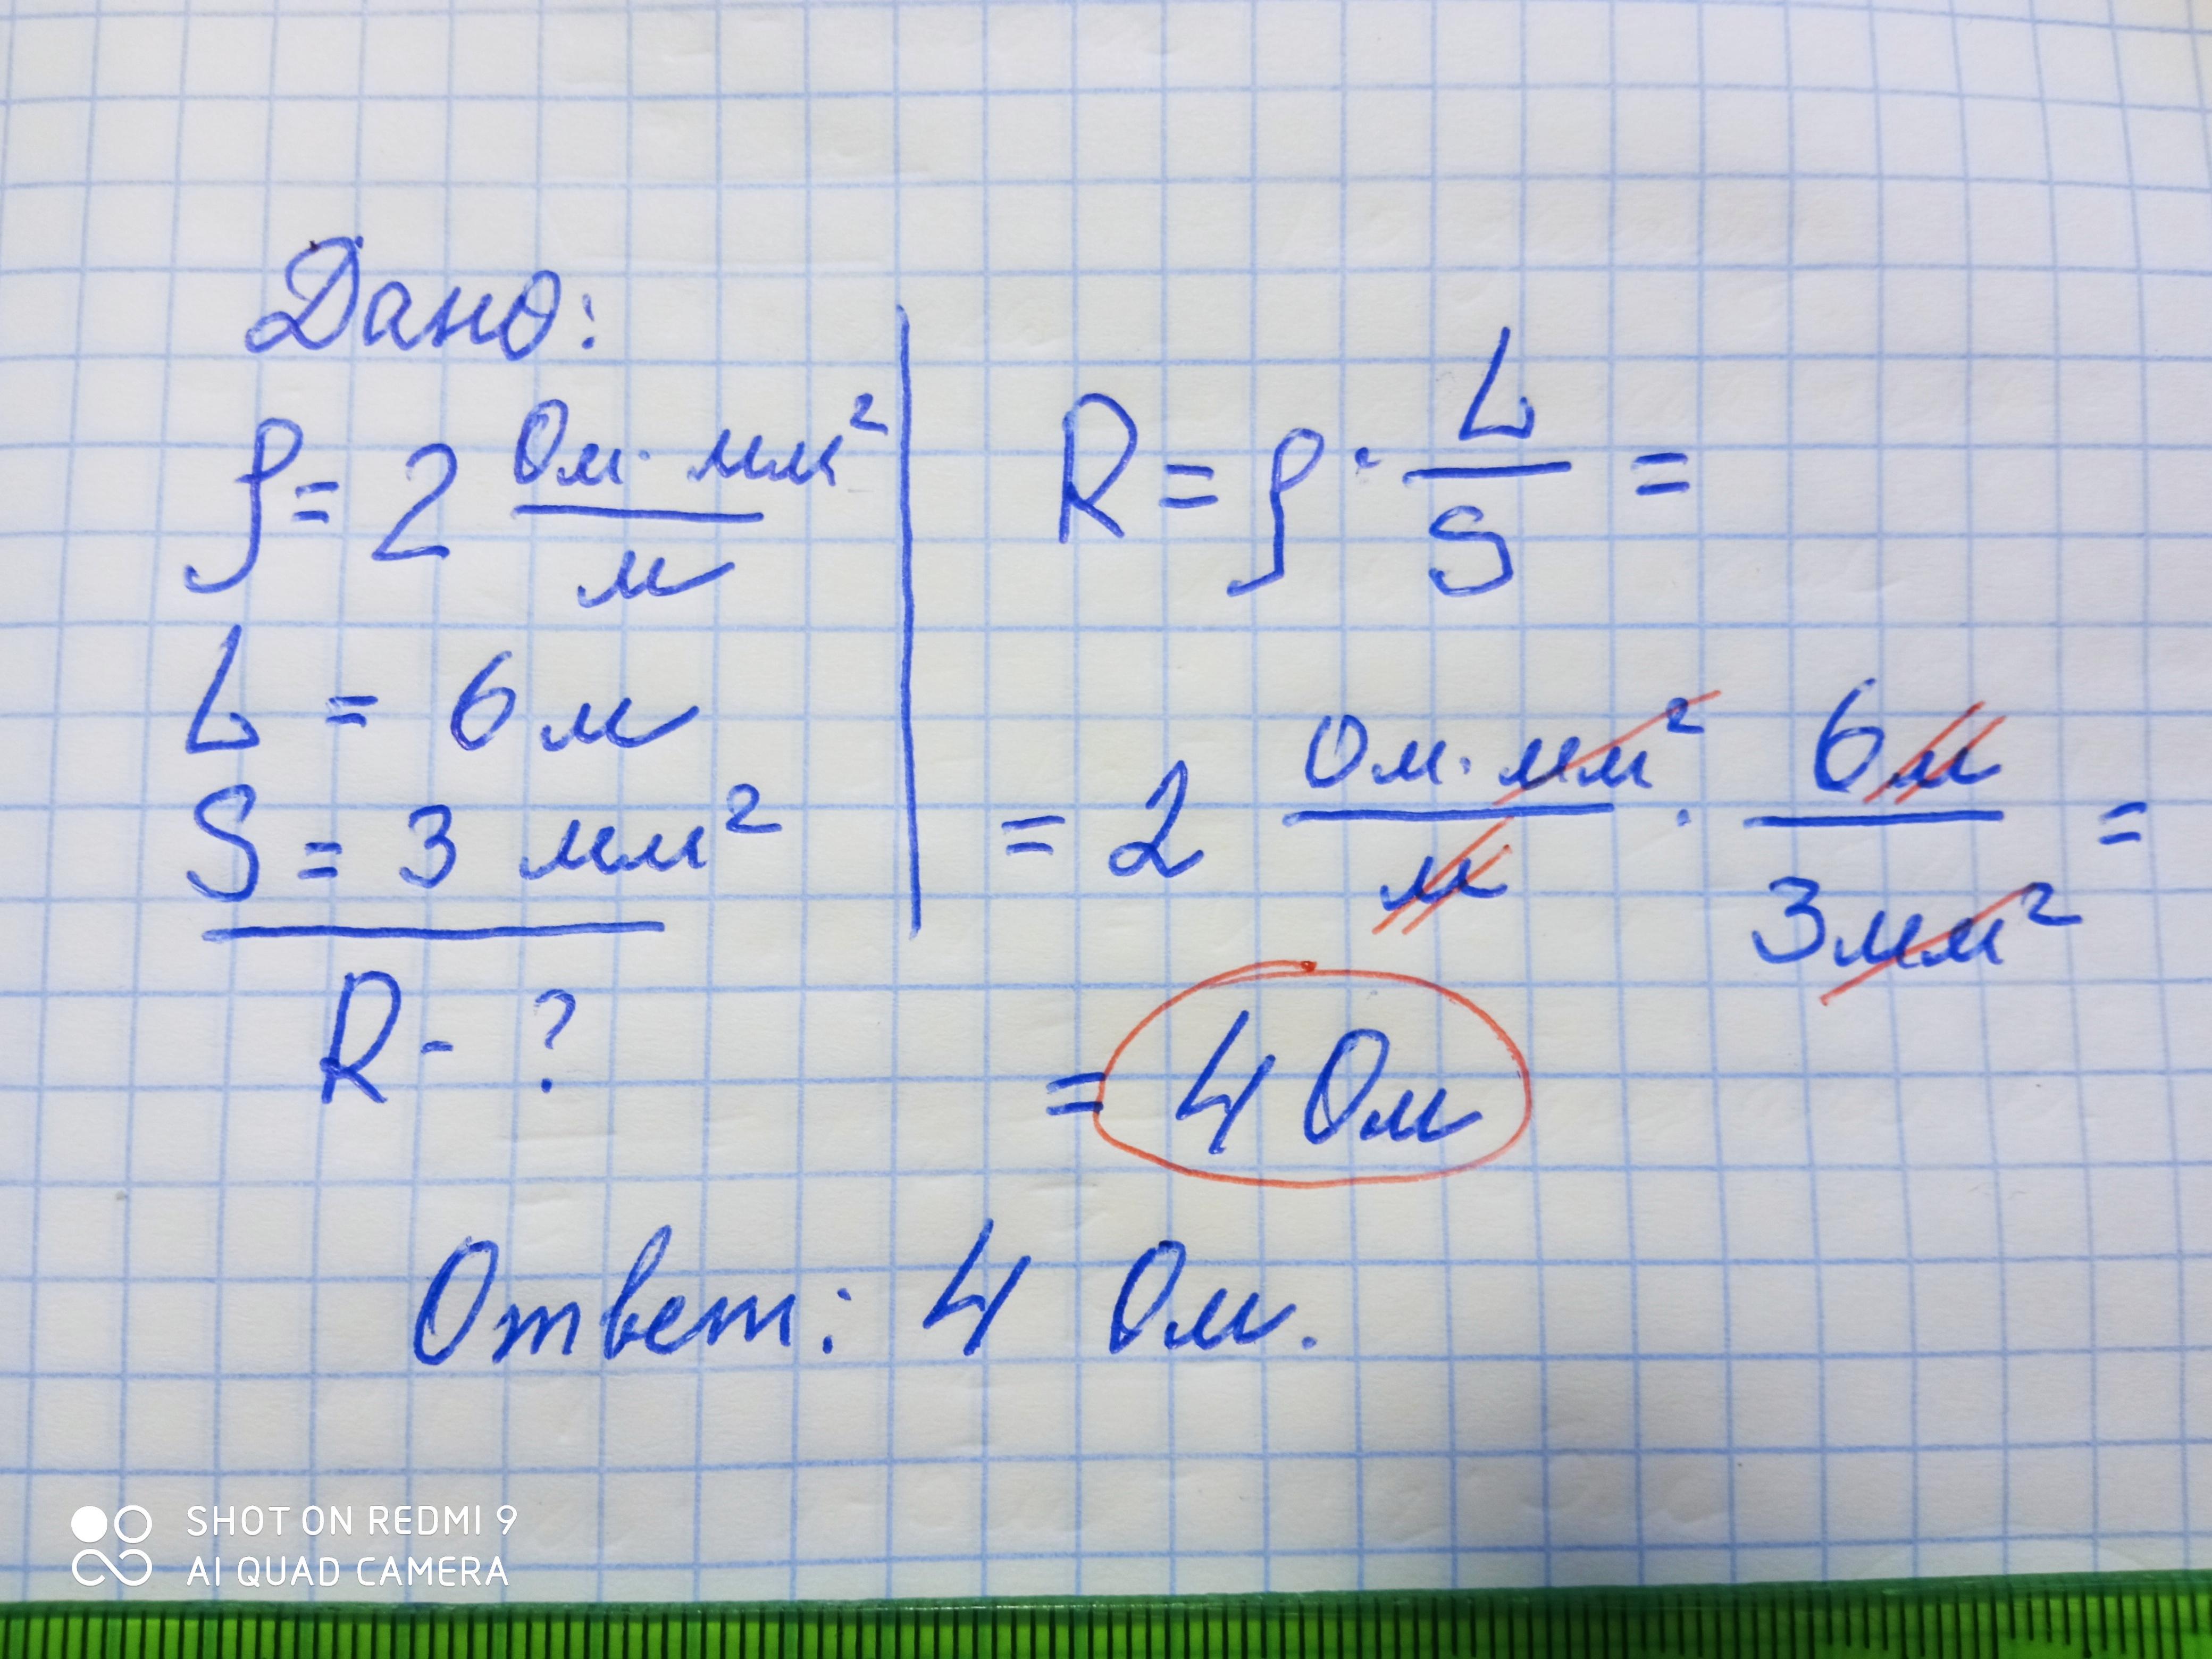 Дано:
ρ = 2 Ом · мм² / м
L = 6 м
S = 3 мм²
R - ?
R = ρ · L / S =
= 2 Ом · мм² / м · 6 м / 3 мм² =
= 4 Ом
Ответ: 4 Ом.
SHOT ON REDMI 9
AI QUAD CAMERA